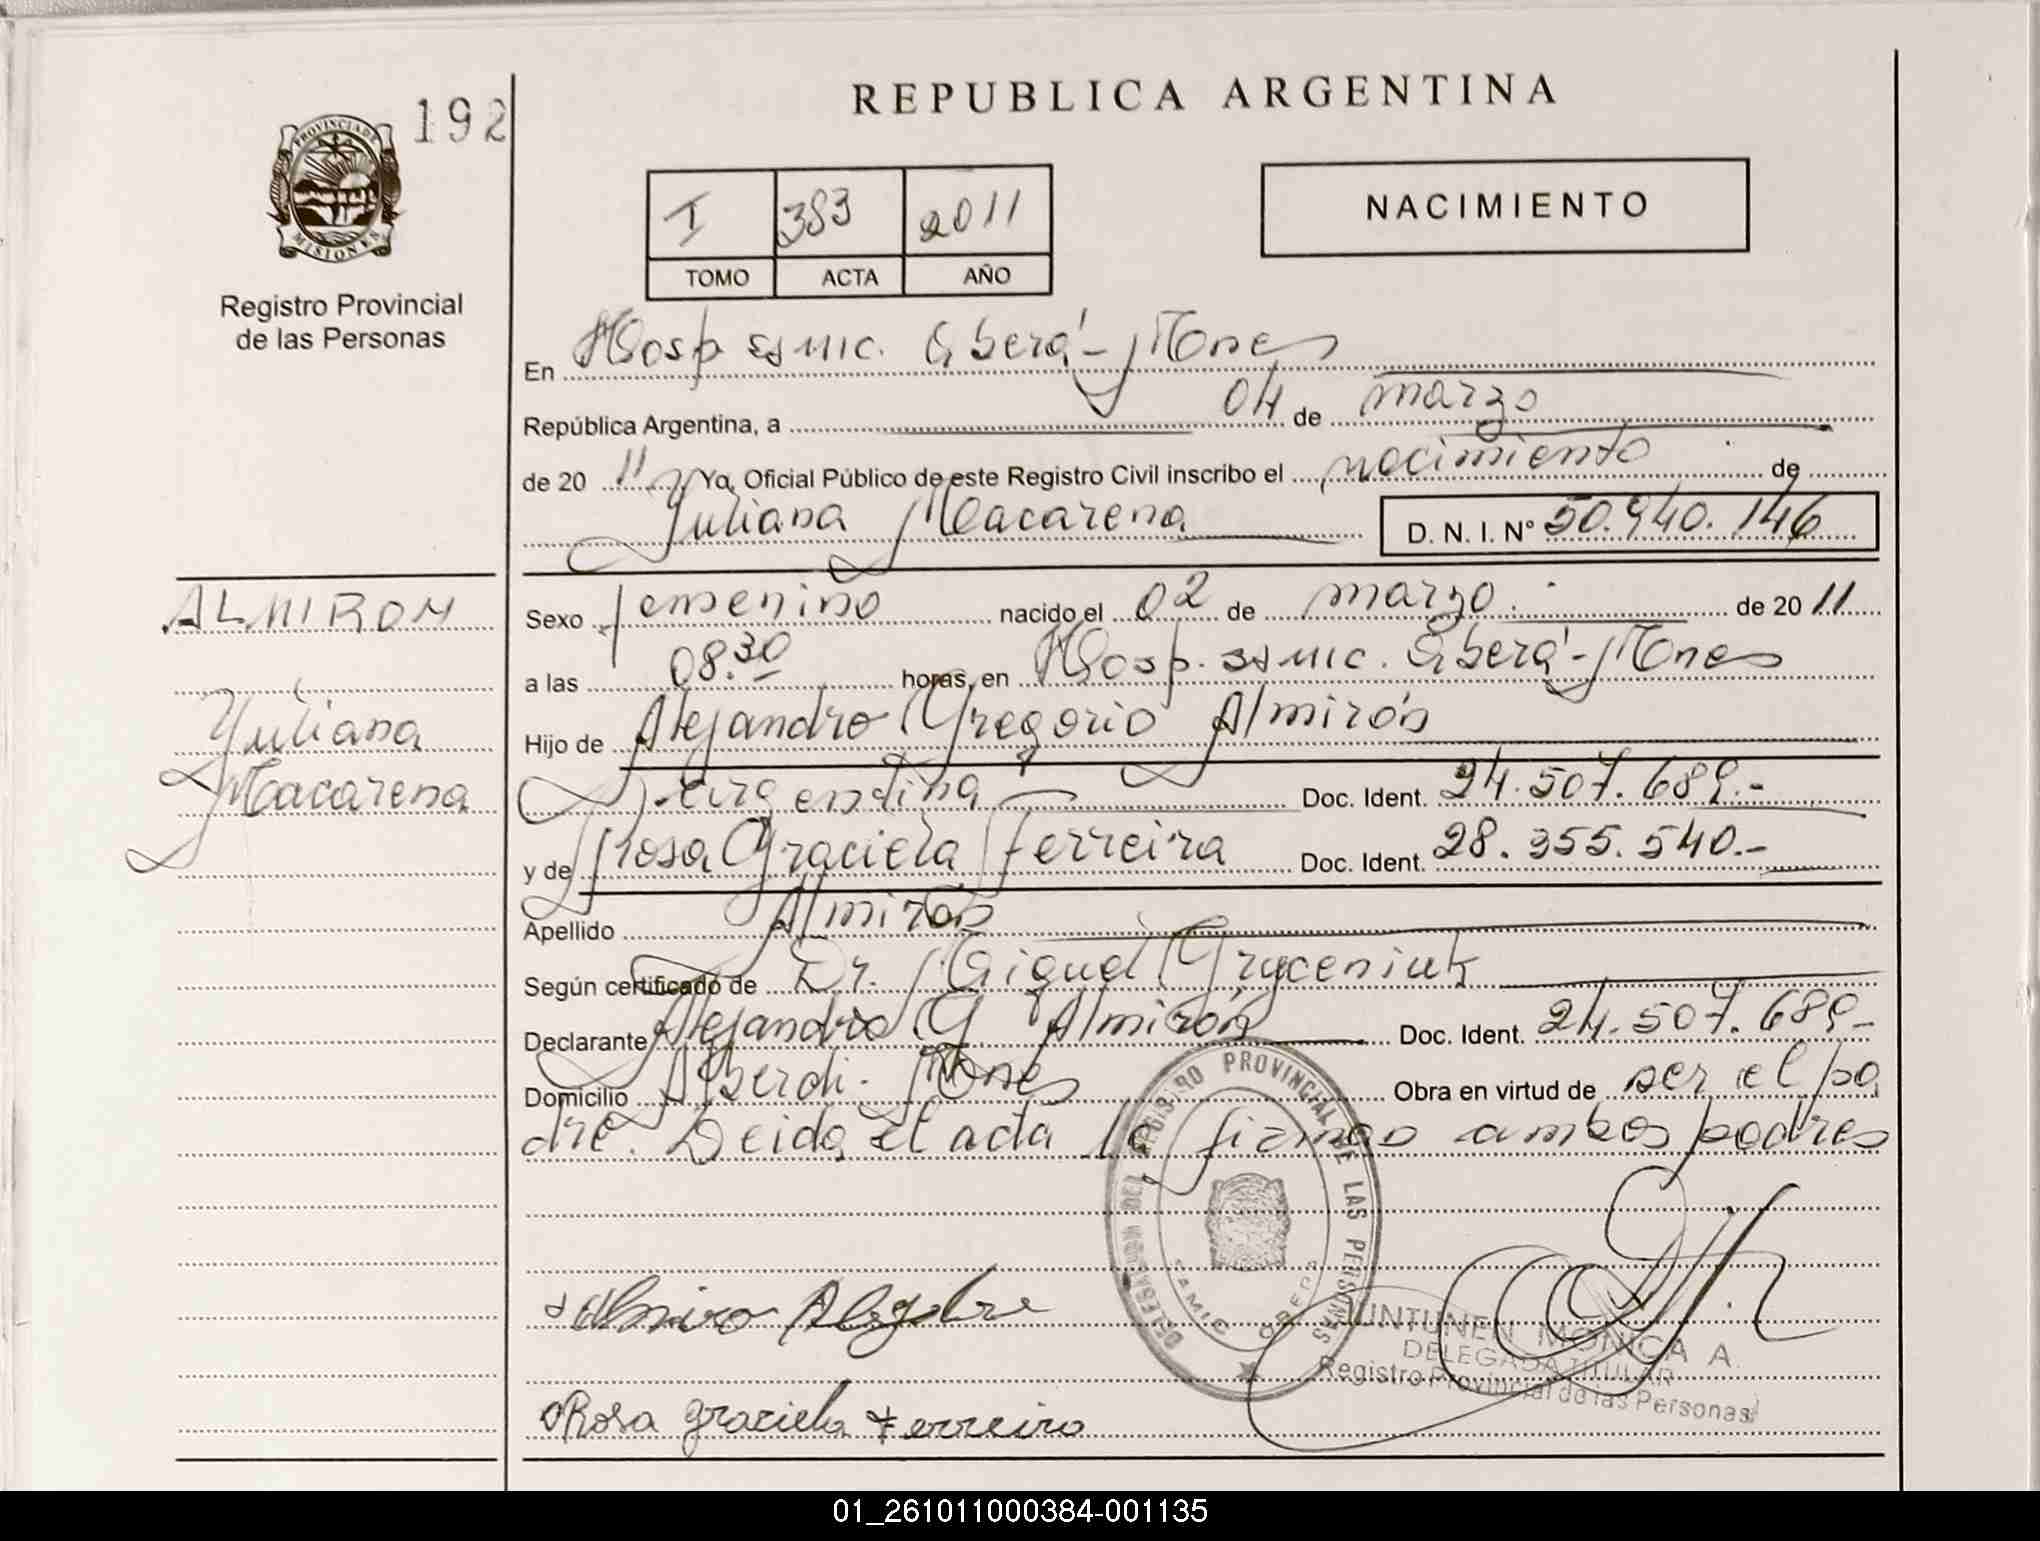 192
REPUBLICA ARGENTINA
PROVINCIA DE
MISIONES
Registro Provincial
de las Personas
I 383 2011
TOMO ACTA AÑO
NACIMIENTO
En Hosp. SAMIC. Oberá - Mnes
República Argentina, a 04 de marzo
de 20 11 Yo, Oficial Público de este Registro Civil inscribo el nacimiento de
Yuliana Macarena D. N. I. N° 50.940.146
ALMIRON
Yuliana
Macarena
Sexo femenino nacido el 02 de marzo de 20 11
a las 08.30 horas, en Hosp. SAMIC. Oberá - Mnes
Hijo de Alejandro Gregorio Almirón
Argentina Doc. Ident. 24.507.689.-
y de Rosa Graciela Ferreira Doc. Ident. 28.355.540.-
Apellido Almirón
Según certificado de Dr. Miguel Gryceniuk
Declarante Alejandro G. Almirón Doc. Ident. 24.507.689.-
Domicilio Alberdi. Mnes Obra en virtud de ser el pa
dre. Leida el acta la firman ambos padres
DELEGACION DEL REGISTRO PROVINCIAL DE LAS PERSONAS
SAMIC OBERA
Almiro
Rosa graciela Ferreira
MONICA A.
DELEGADA TITULAR
Registro Provincial de las Personas
01_261011000384-001135